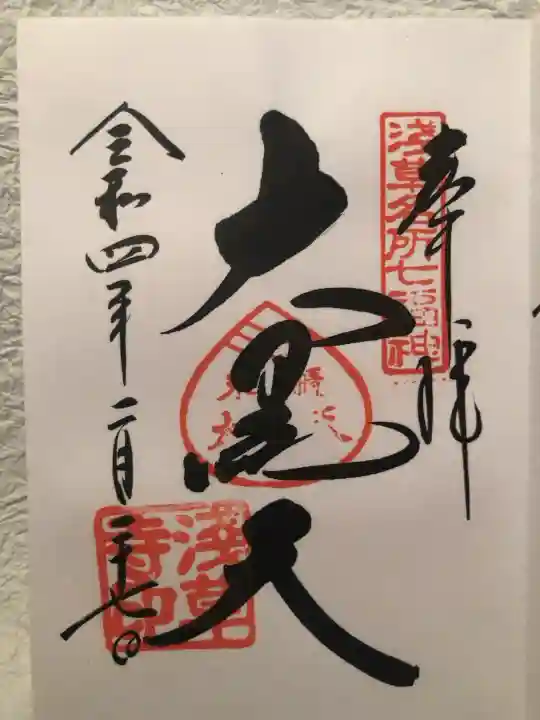 奉拝
浅草名所七福神
大黒天
浅草
寺印
令和四年二月二十七日